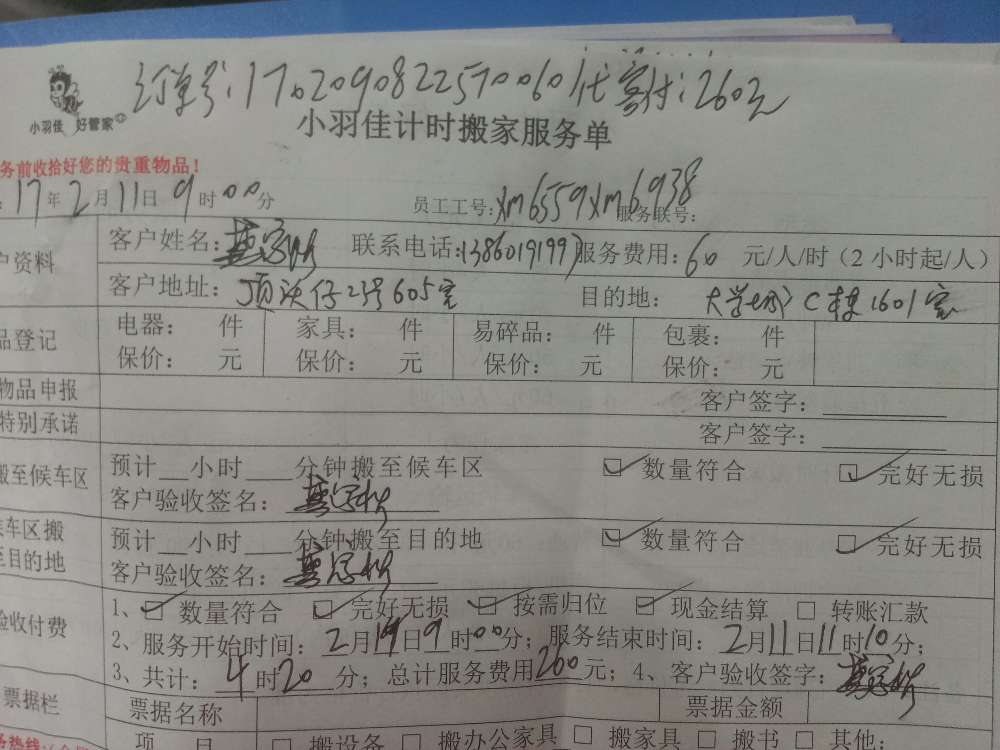 订单号:17020908225700601代客付:260元
小羽佳 好管家
小羽佳计时搬家服务单
务前收拾好您的贵重物品!
17年2月11日9时00分 员工工号:xm6559xm6938 服务联号:
户资料 客户姓名: 联系电话:13860191997 服务费用:60 元/人/时(2小时起/人)
客户地址: 顶沃仔23号605室 目的地: 大学城C栋1601室
品登记 电器: 件 家具: 件 易碎品: 件 包裹: 件
保价: 元 保价: 元 保价: 元 保价: 元
物品申报 客户签字:
特别承诺 客户签字:
搬至候车区 预计__小时____分钟搬至候车区 ☑ 数量符合 ☑ 完好无损
客户验收签名:
候车区搬 预计__小时____分钟搬至目的地 ☑ 数量符合 ☑ 完好无损
至目的地 客户验收签名:
验收付费 1、☑ 数量符合 ☑ 完好无损 ☑ 按需归位 ☑ 现金结算 □ 转账汇款
2、服务开始时间:2月11日9时00分;服务结束时间:2月11日11时10分;
3、共计:4时20分;总计服务费用260元;4、客户验收签字:
票据栏 票据名称 票据金额
务热线 项 目 □ 搬设备 □ 搬办公家具 □ 搬家具 □ 搬书 □ 其他: